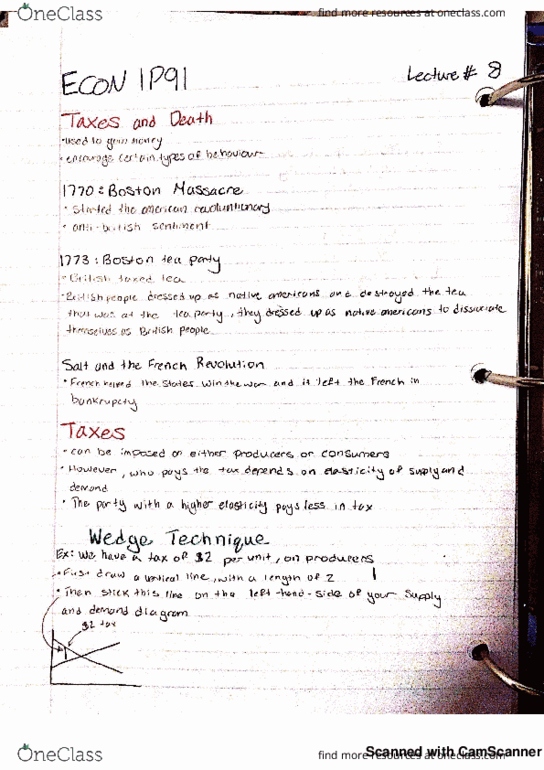 OneClass
find more resources at oneclass.com
ECON 1P91
Lecture # 8
Taxes and Death
• used to gain money
• encourage certain types of behaviour
1770: Boston Massacre
• Started the american revoluntionary
• anti-british sentiment
1773: Boston tea party
• British taxed tea
• British people dressed up as native americans and destroyed the tea
that was at the tea party, they dressed up as native americans to dissociate
themselves as British people.
Salt and the French Revolution
• French helped the States win the war and it left the French in
bankruptcy
Taxes
• can be imposed on either producers or consumers
• However, who pays the tax depends on elasticity of supply and
demand
• The party with a higher elasticity pays less in tax
Wedge Technique
Ex: We have a tax of $2 per unit, on producers
• First draw a vertical line, with a length of 2
• Then stick this line on the left-hand-side of your supply
and demand diagram
$2 tax
OneClass
find more resources at oneclass.com
Scanned with CamScanner